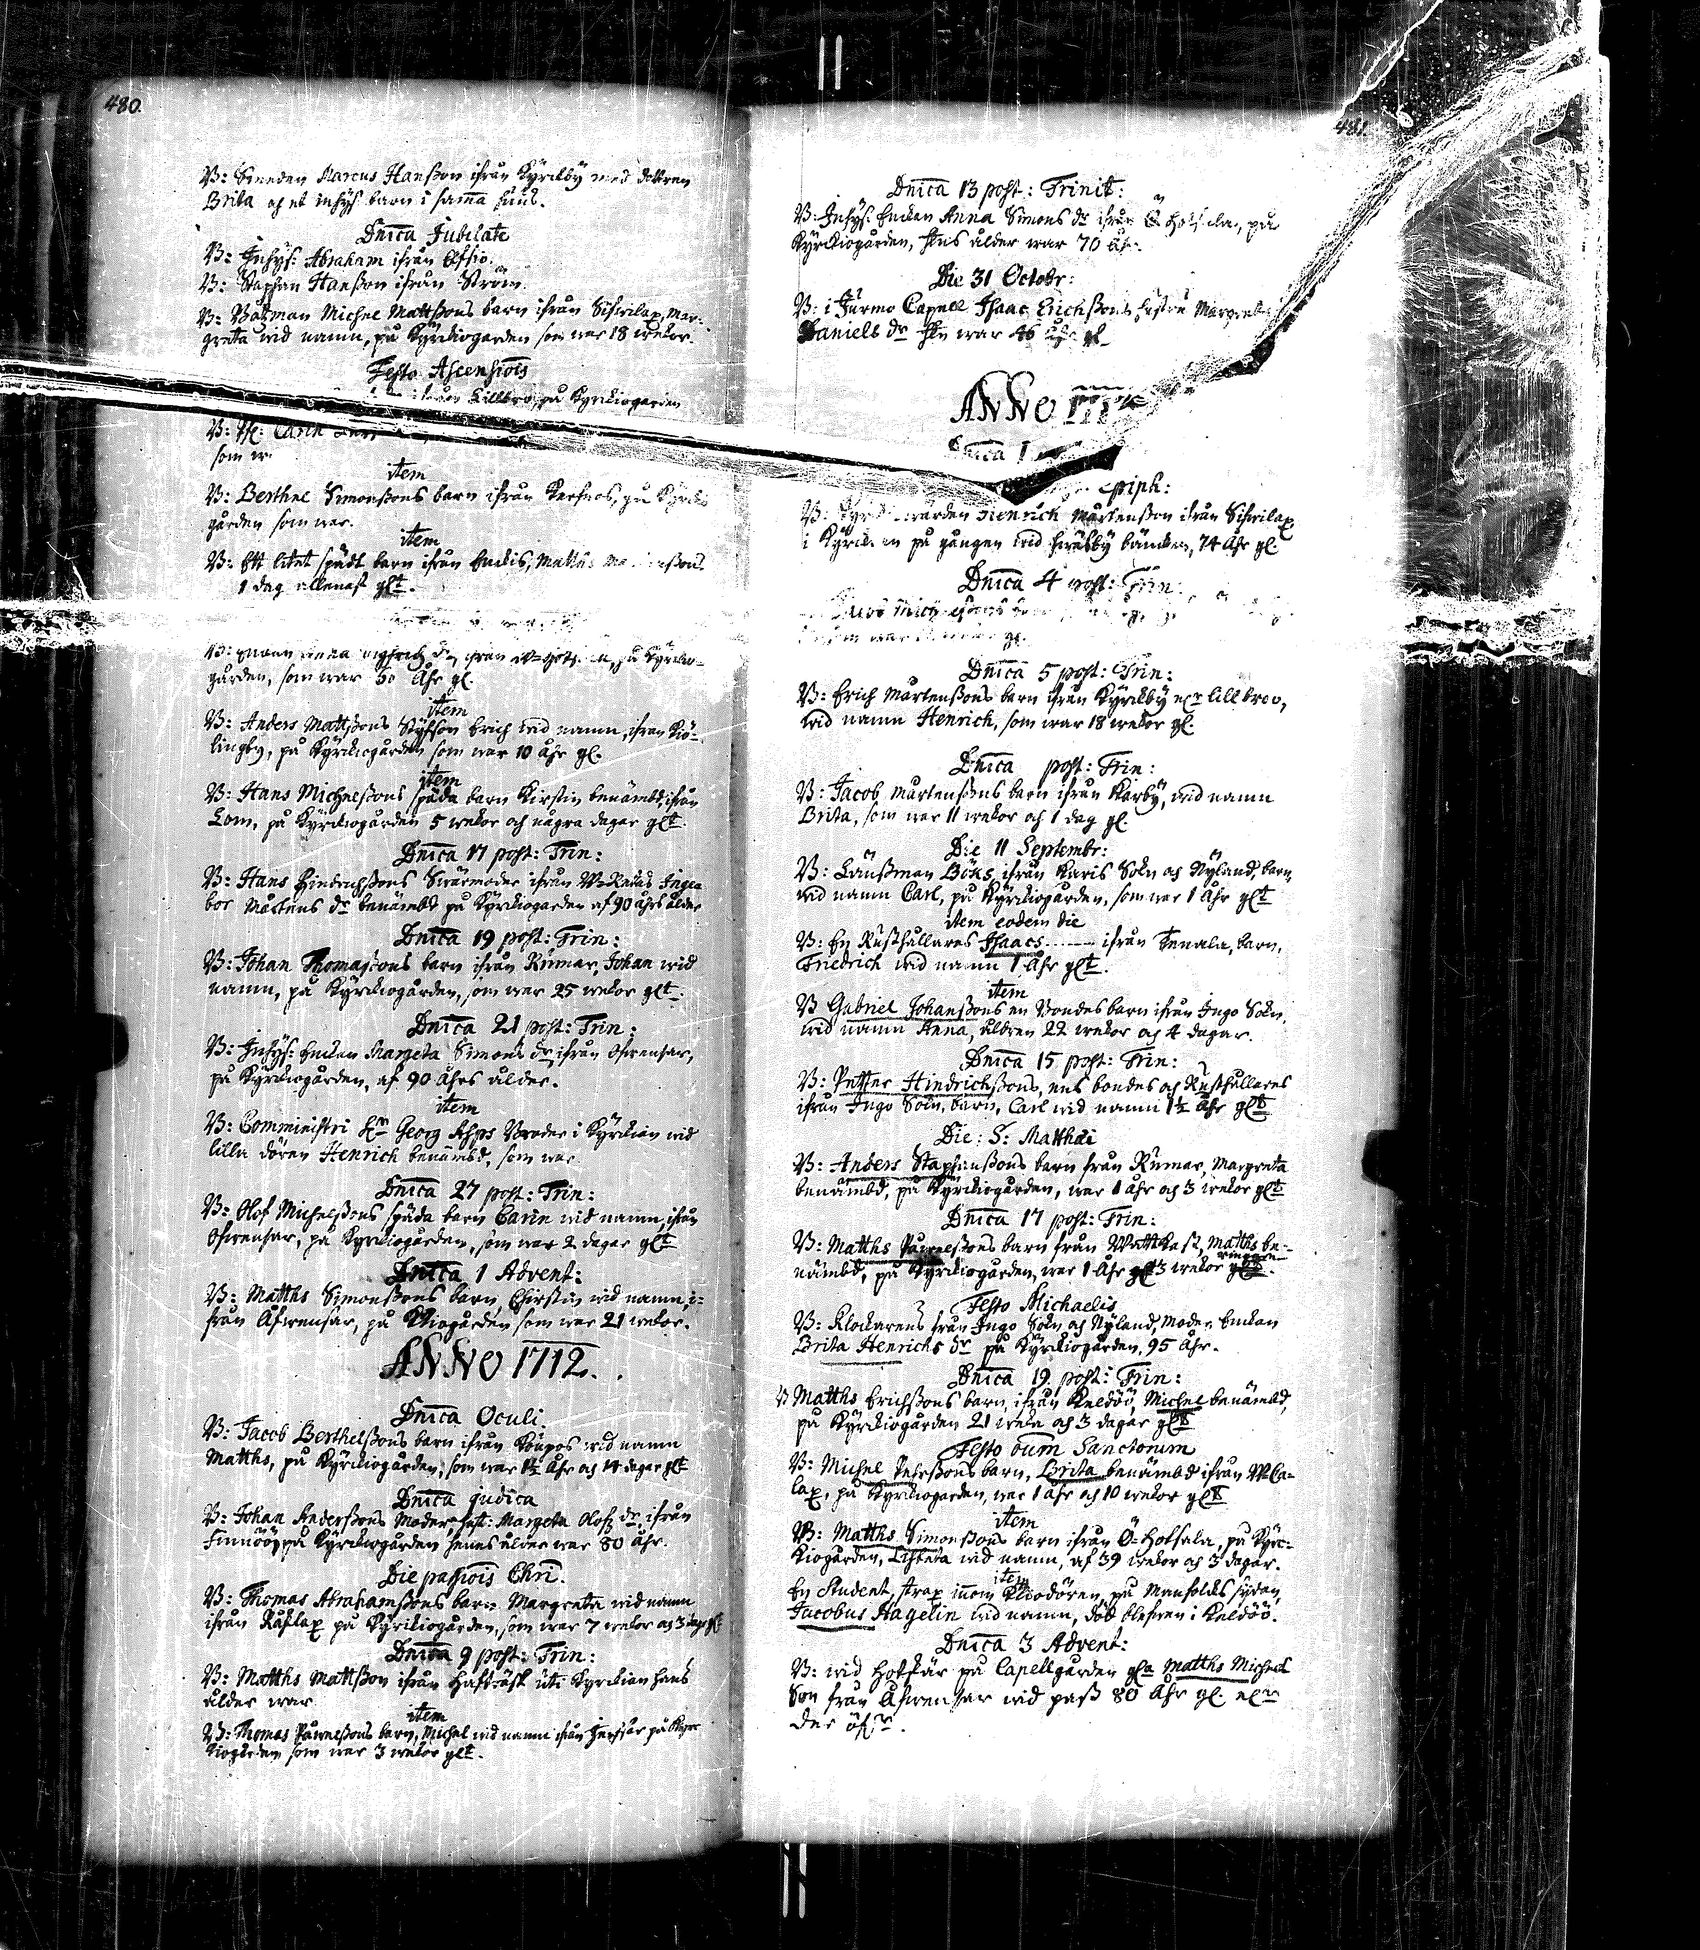 480.
B: Marcus Hanßon ifrån Kyrkby med dottren
Brita och et inhys barn i sama huus.
Dnica Jubilate
B: Inhys: Abraham ifrån
B: Staphan Hanßon ifrån Ström.
B: Båtzman Michel Mattßons barn ifrån Sifwilax, Mar-
greta wid namn, på Kyrkiogården som war 18 wekor.
Festo Ascensiois
Lillbro, på Kyrkiogården
B: Carin
som w
item
B: Berthel Simonßons barn ifrån på Kyrkio
gården som war.
item
B: Ett litet spädt barn ifrån Matts
1 dag allenast glt.
B: Anna ifrån på Kyrkio-
gården, som war åhr gl.
item
B: Anders Mattßons Styfson Erich wid namn, ifrån
lingby, på Kyrkiogården som war 10 åhr gl.
item
B: Hans Michelßons späda barn Kirstin benämbd, ifrån
Lom, på Kyrkiogården 5 wekor och några dagar glt.
Dnica 17 post: Trin:
B: Hans Hindrichßons Swärmoder ifrån Inge
bor Mårtens dr benämbd på Kyrkiogården af 90 åhrs ålder
Dnica 19 post: Trin:
B: Johan Thomaßons barn ifrån Rumar, Johan wid
namn, på Kyrkiogården, som war 25 wekor glt.
Dnica 21 post: Trin:
B: Inhys: Enckan Margeta Simons dr ifrån Ofwensar,
på Kyrkiogården, af 90 åhrs ålder.
item
B: Comministri Hr Georg Broder i Kyrkian wid
lilla dören Henrich benämbd, som war
Dnica 27 post: Trin:
B: Olof Michelßons späda barn Carin wid namn, ifrån
Ofwensar, på Kyrkiogården, som war 2 dagar glt
Dnica 1 Advent:
B: Matths Simonßons barn, Chirstin wid namn, i-
från Åfwensar, på Kkiogården som war 21 wekor.
ANNO 1712.
Dnica Oculi.
B: Jacob Berthelßons barn ifrån wid namn
Matths, på Kyrkiogården, som war 1½ åhr och 14 dagar glt
Dnica judica
B: Johan Anderßons Moder, Margeta Olofz dr, ifrån
Finnöö, på Kyrkiogården henes ålder war 80 åhr.
Die passiois Chri.
B: Thomas Abrahamßons barn Margreta wid namn
ifrån Käslax på Kyrkiogården, som war 7 wekor och 3 dagr gl
Dnica 9 post: Trin:
B: Matths Mattßon ifrån Hafträsk uti Kyrkian hans
ålder war
item
B: Thomas Påwelßons barn, Michel wid namn ifrån på Kyr
kiogården som war 3 wekor glt.
481.
Dnica 13 post: Trinit:
B: Inhys: Enckan Anna Simons dr ifrån på
Kyrkiogården, hänes ålder war 70 åhr.
Die 31 Octobr:
B: i Jurmo Capell Isaac Erichßons hustru Margreta
Daniels dr war 46 åhr gl
ANNO
Dnica 1
epiph:
B: Henrich Mårtenßon ifrån Sifwilax
i Kyrkian på gången wid bäncken, 74 åhr gl.
Dnica 4 post: Trin:
Dnica 5 post: Trin:
B: Erich Mårtenßons barn ifrån Kyrkby lillbroo,
wid namn Henrich, som war 18 wekor gl.
Dnica post: Trin:
B: Jacob Mårtenßons barn ifrån Kärby, wid namn
Brita, som war 11 wekor och 1 dag gl.
Die 11 Septembr:
B: Länßman ifrån Karis Sokn och Nyland, barn
wid namn Carl, på Kyrkiogården, som war 1 åhr glt
item eodem die
B: En Rusthållares Isaacs ------ ifrån Tenala, barn,
Friedrich wid namn 1 åhr glt.
item
B Gabriel Johanßons en Bondes barn ifrån Ingo Sokn,
wid namn Anna, åldren 22 wekor och 4 dagar.
Dnica 15 post: Trin:
B: Petter Hindrichßons, ens bondes och Rusthållares
ifrån Ingo Sokn, barn, Carl wid namn 1½ åhr glt
Die: S: Matthæi
B: Anders Staphanßons barn från Rumar, Margreta
benämbd, på Kyrkiogården, war 1 åhr och 3 wekor glt
Dnica 17 post: Trin:
B: Matths Påwelßons barn från Wattkast, Matths be-
nämbd, på Kyrkiogården, war 1 åhr 3 wekor
Festo Michaelis
B: Klockarens från Ingo Sokn och Nyland, Moder Enckan
Brita Henrichs dr på Kyrkiogården, 95 åhr.
Dnica 19 post: Trin:
B Matths Erichßons barn, ifrån Keldöö, Michel benämbd,
på Kyrkiogården 21 weka och 3 dagar glt
Festo oum Sanctorum
B: Michel Pehrßons barn, Brita benämbd ifrån
lax, på Kyrkiogården, war 1 åhr och 10 wekor glt
item
B: Matths Simonßons barn ifrån Ö-Hofsala, på Kyr-
kiogården, Lisbeta wid namn, af 39 wekor och 3 dagar.
item
En Student, strax innom Kkiodören, på Manfolks sydan,
Jacobus Hagelin wid namn, död blefwen i Keldöö.
Dnica 3 Advent:
B: wid Hotskär på Capellgården gla Matths Michel
Son från Åfwensar wid paß 80 åhr gl. elr
der öfr.